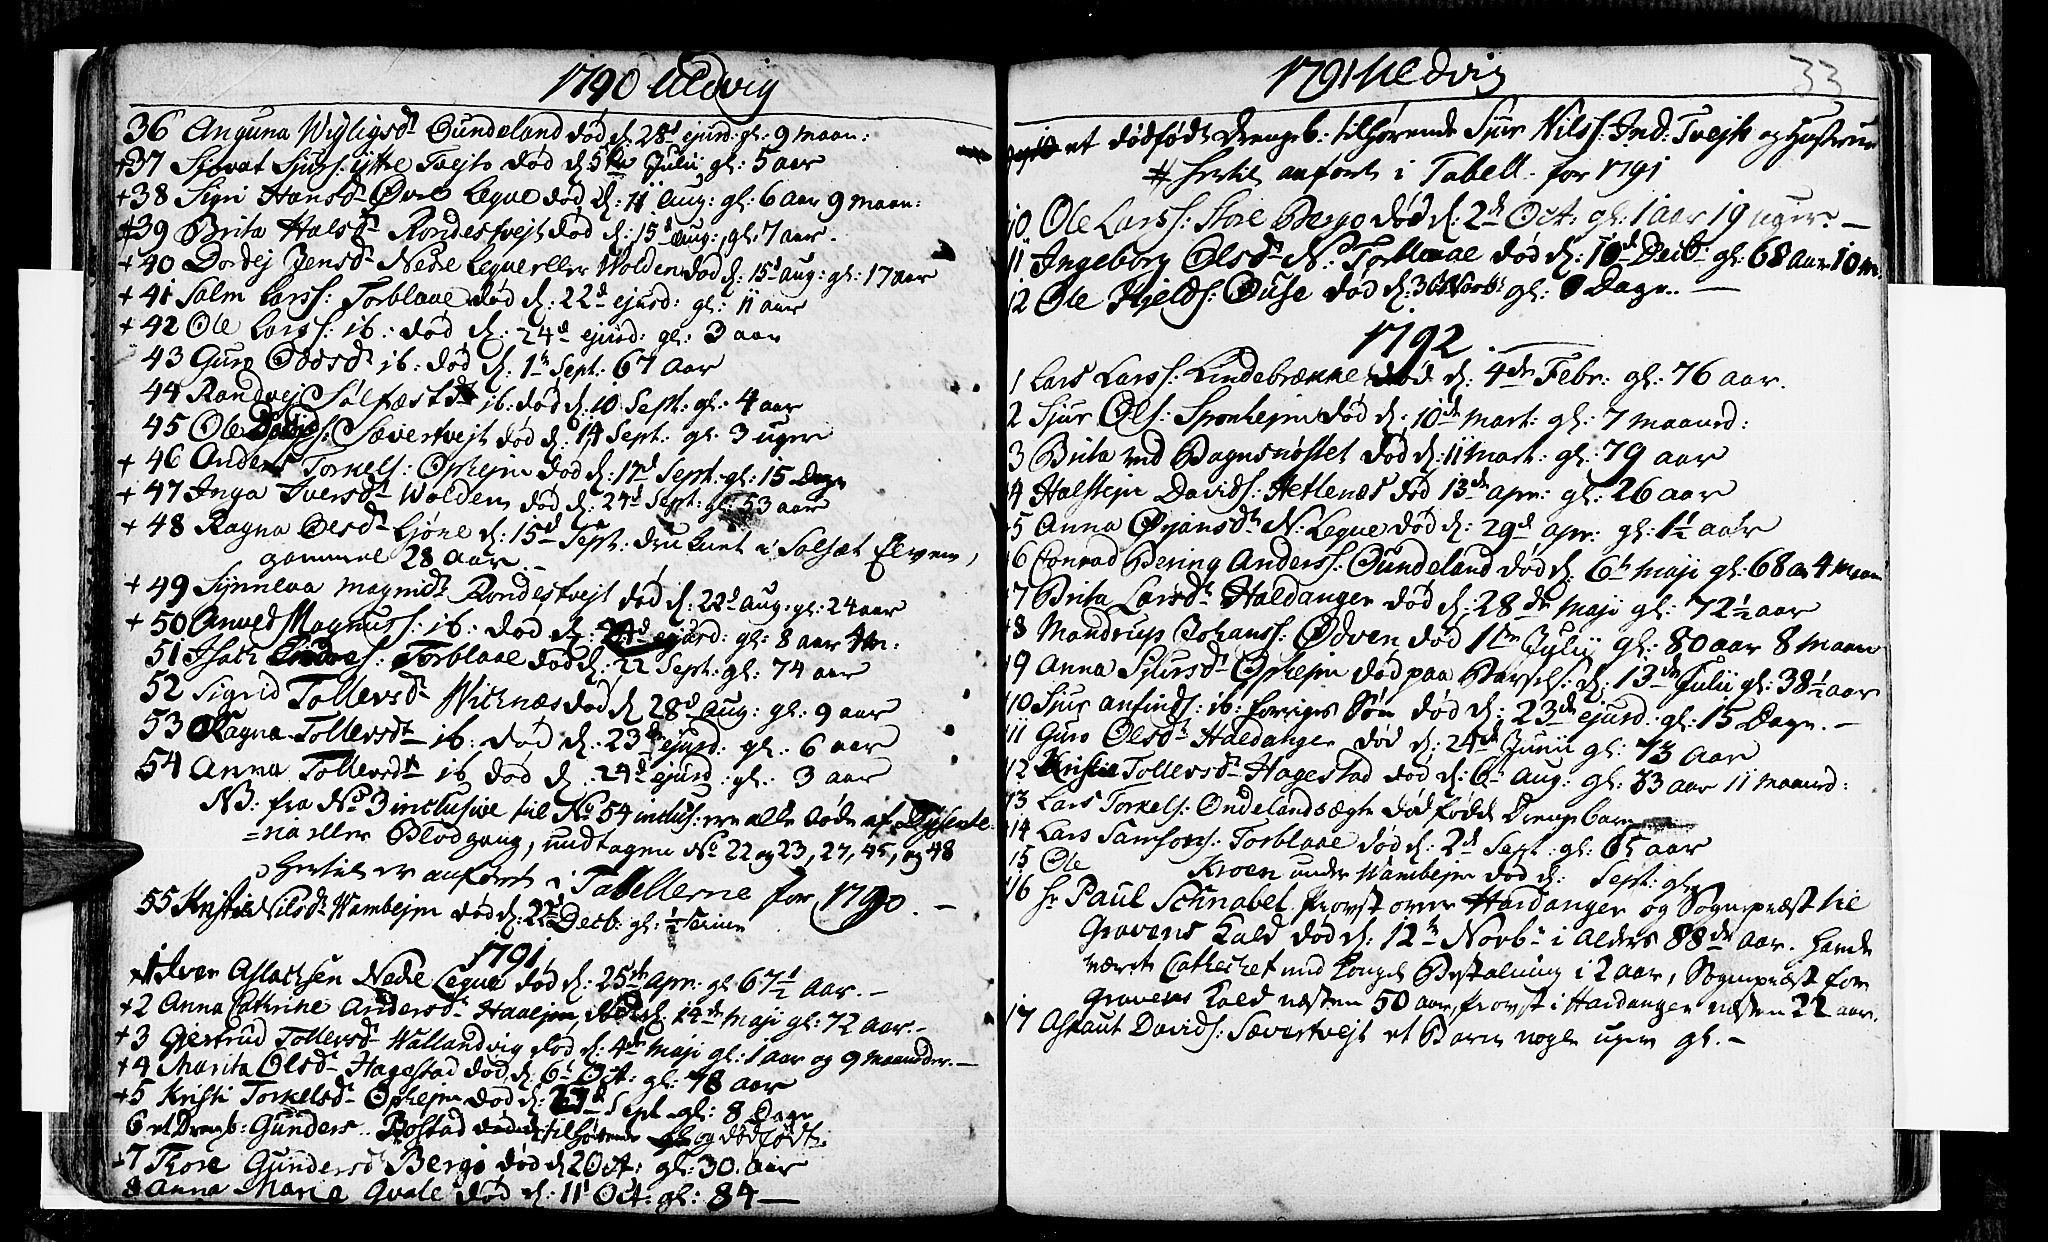 1790 Uldvig
36 Anguna Wigligsd. Oundeland død d. 28d ejusd: gl: 9 maan:
+37 Sjovat Sjurs: ytre Tvejto død d 5te Julii gl: 5 aar
+38 Sigri Hansd. Øvre Leque død d: 11 Aug: gl: 6 aar 9 maan:
+39 Brita Halsd. Rondestvejt død d: 15d Aug: gl: 7 aar.
+40 Dordej Jensd. Nedre Leque eller Wolden død d: 15d Aug: gl: 17 aar
+41 Salm Larss: Torblaae død d: 22d ejusd: gl: 11 aar
+42 Ole Larss: ib: død d: 24d ejusd: gl: 3 aar
43 Guro Oddsd. ib: død d: 1n Sept: 67 Aar
44 Randvej Sølfæstd. ib: død d: 10 Sept: gl: 4 aar
45 Ole Davids: Sævertvejt død d: 14 Sept: gl: 3 uger
+46 Anders Torkels: Ophejm død d: 17d Sept: gl: 15 Dage
+47 Inga Iversd. Wolden død d: 24d Sept: gl: 53 aar
+48 Ragna Olsd. Ljone d: 15d Sept: druknet i Solsæt Elven,
gammel 28 Aar. -
+49 Synneva Magnid. Rondestvejt død d: 22d Aug: gl: 24 aar
+50 Anved Magnuss: ib: død d: 24d ejusd: gl: 8 aar 4 m:
51 Isach Torblaae død d: 22 Sept: gl: 74 aar
52 Sigrid Tollevsd. Wiknæs død d 28d Aug: gl: 9 aar
53 Ragna Tollevsd. ib: død d: 23de ejusd: gl: 6 aar
54 Anna Tollevsd. ib død d: 24d ejusd: gl: 3 aar
NB: fra No 3 inclusive til No 54 inclus: ere alle døde af Dysente=
=ria eller Blodgang, undtagen No 22 og 23, 27, 45, og 48
Hertil er anført i Tabellerne for 1790. -
55 Kristie Nilsd. Wambejm død d: 22d Decb: gl: ½ Time
1791
+1 Iver Aslachsen Nedre Leque død d: 25de Apr: gl 67½ Aar. -
+2 Anna Cathrine Andersd. Haaejm død d: 14de Maji gl: 72 aar. -
+3 Gjertrud Tollevsd. Wallandvig død d: 4de Maji gl: 1 aar og 9 maaneder. -
+4 Marita Olsd. Hagestad død d 6t Oct: gl: 78 aar
+5 Kristi Torkelsd. Ophejm død d: 27d Sept gl: 8 Dage
6 et Drengb: Gunders Bostad tilhørende og dødfødt.
+7 Thore Gundersd. Bergo død d 2 Oct: gl: 30. aar
8 Anna Marie Qvale død d: 11t Oct: gl: 84 -
1791 Uldvig
33
et dødfødt Drengeb: tilhørende Sjur Nilss: Ind: Tvejto og Hustrue
# hertil anført i Tabell. for 1791
10 Ole Larss: Store Bergo død d: 2de Oct: gl: 1 aar 19 uger. -
11 Ingeborg Olsd. N: Torblaae død d: 10de Decb. gl: 68 aar 10 m.
12 Ole Kjelds: Ouse død d: 30 Novb: gl: 0 Dage. -
1792.
1 Lars Larss: Lindebrække død d: 4de Febr: gl: 76 aar.
2 Sjur Ols: Sponhejm død d: 10de Mart: gl: 7 maaned:
3 Brita ved Bagnsnøstet død d: 11 Mart: gl: 79 aar
+4 Halstejn Davids: Hetlenæs død 13de apr: gl: 26 aar
+5 Anna Ørjansd. N: Leque død d: 29d apr: gl: 1½ aar
+6 Conrad Bering Anderss: Oundeland død d: 6t Maji gl: 68 a 4 maan
+7 Brita Larsd. Haldanger død d: 28de Maji gl: 72½ aar
+8 Mandrup Johanss: Ødven død 11te Julii gl: 80 aar 8 maan
+9 Anna Sjursd. Ophejm død paa Barsels: d: 13de Julii gl: 38½ aar
10 Sjur Anfinds: ib: forriges Søn død d: 23de ejusd: gl: 15 Dage. -
11 Guro Olsd. Haldanger død d: 24de Junii gl: 73 Aar
12 Kristie Tollevsd. Hagestad død d: 6t Aug: gl: 33 aar 11 maaned:
13 Lars Torkels: Ondelandsægte dødfødd Drengebarn
+14 Lars Samsons: Torblaae død d: 2d Sept: gl: 65 aar
15 Ole Kroen under Wambejm død d: Sept: gl:
16 Hr Paul Schnabel Provst over Hardanger og Sognepræst til
Gravens Kald død d: 12te Novb. i Alders 88de Aar. Havde
været Cathechet med Kongel Bestalning i 2 aar, Sognepræst for
Gravens Kald næsten 50 aar, Provst i Hardanger næsten 22 aar.
17 Aslaut Davids: Sævertvejt et Barn nogle uger gl. -